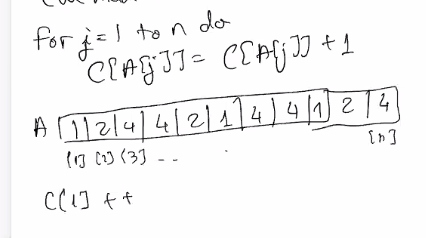 for j=1 to n do
C[A[j]] = C[A[j]] + 1
A 1 | 2 | 4 | 4 | 2 | 1 | 4 | 4 | 1 | 2 | 4
[1] [2] [3] - - [n]
C[1] ++